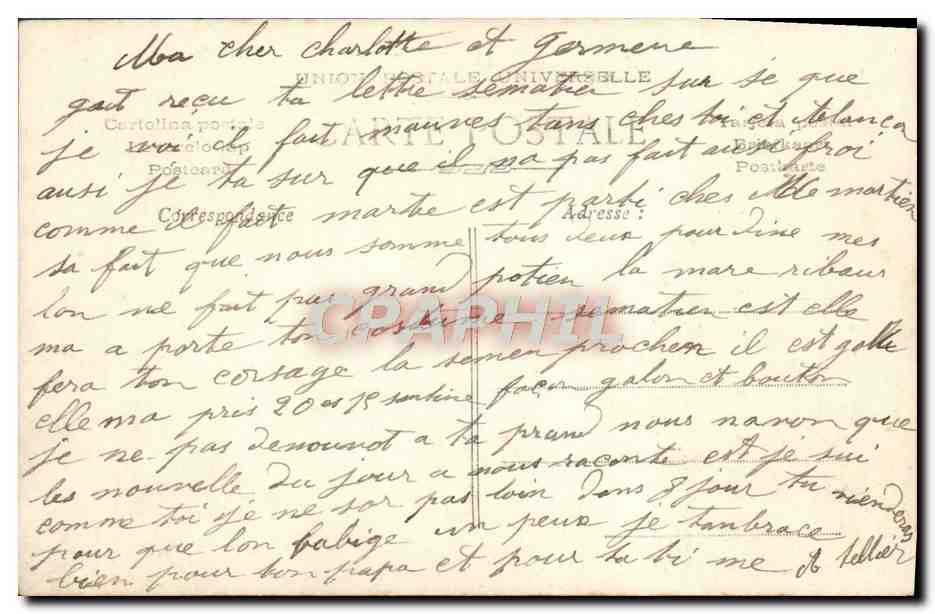 Ma cher charlotte et Germene
UNION POSTALE UNIVERSELLE
gait reçu ta lettre sematien sur se que
Cartolina postale
CARTE POSTALE
je voi il fait mauves tans ches toi et
Postcard
Postkarte
ausi je ta sur que il na pas fait ausi froi
Correspondance
Adresse :
comme il fait martre est parti ches Me martien
sa fait que nous somme tous deux pour dine mes
lon ne fait pas grand potien la mare ribaur
CPAPHIL
ma a porte ton costume sematien est elle
fera ton corsage la semen prochen il est
elle ma pris 20 es façon galon et bouton
je ne pas denouvot a ta prand nous navon que
les nouvelle du jour a nous raconte est je sui
comme toi je ne sor pas loin dans 8 jour tu vienderas
pour que lon babige un peux je tanbrace
bien pour ton papa et pour ta ti me tellier